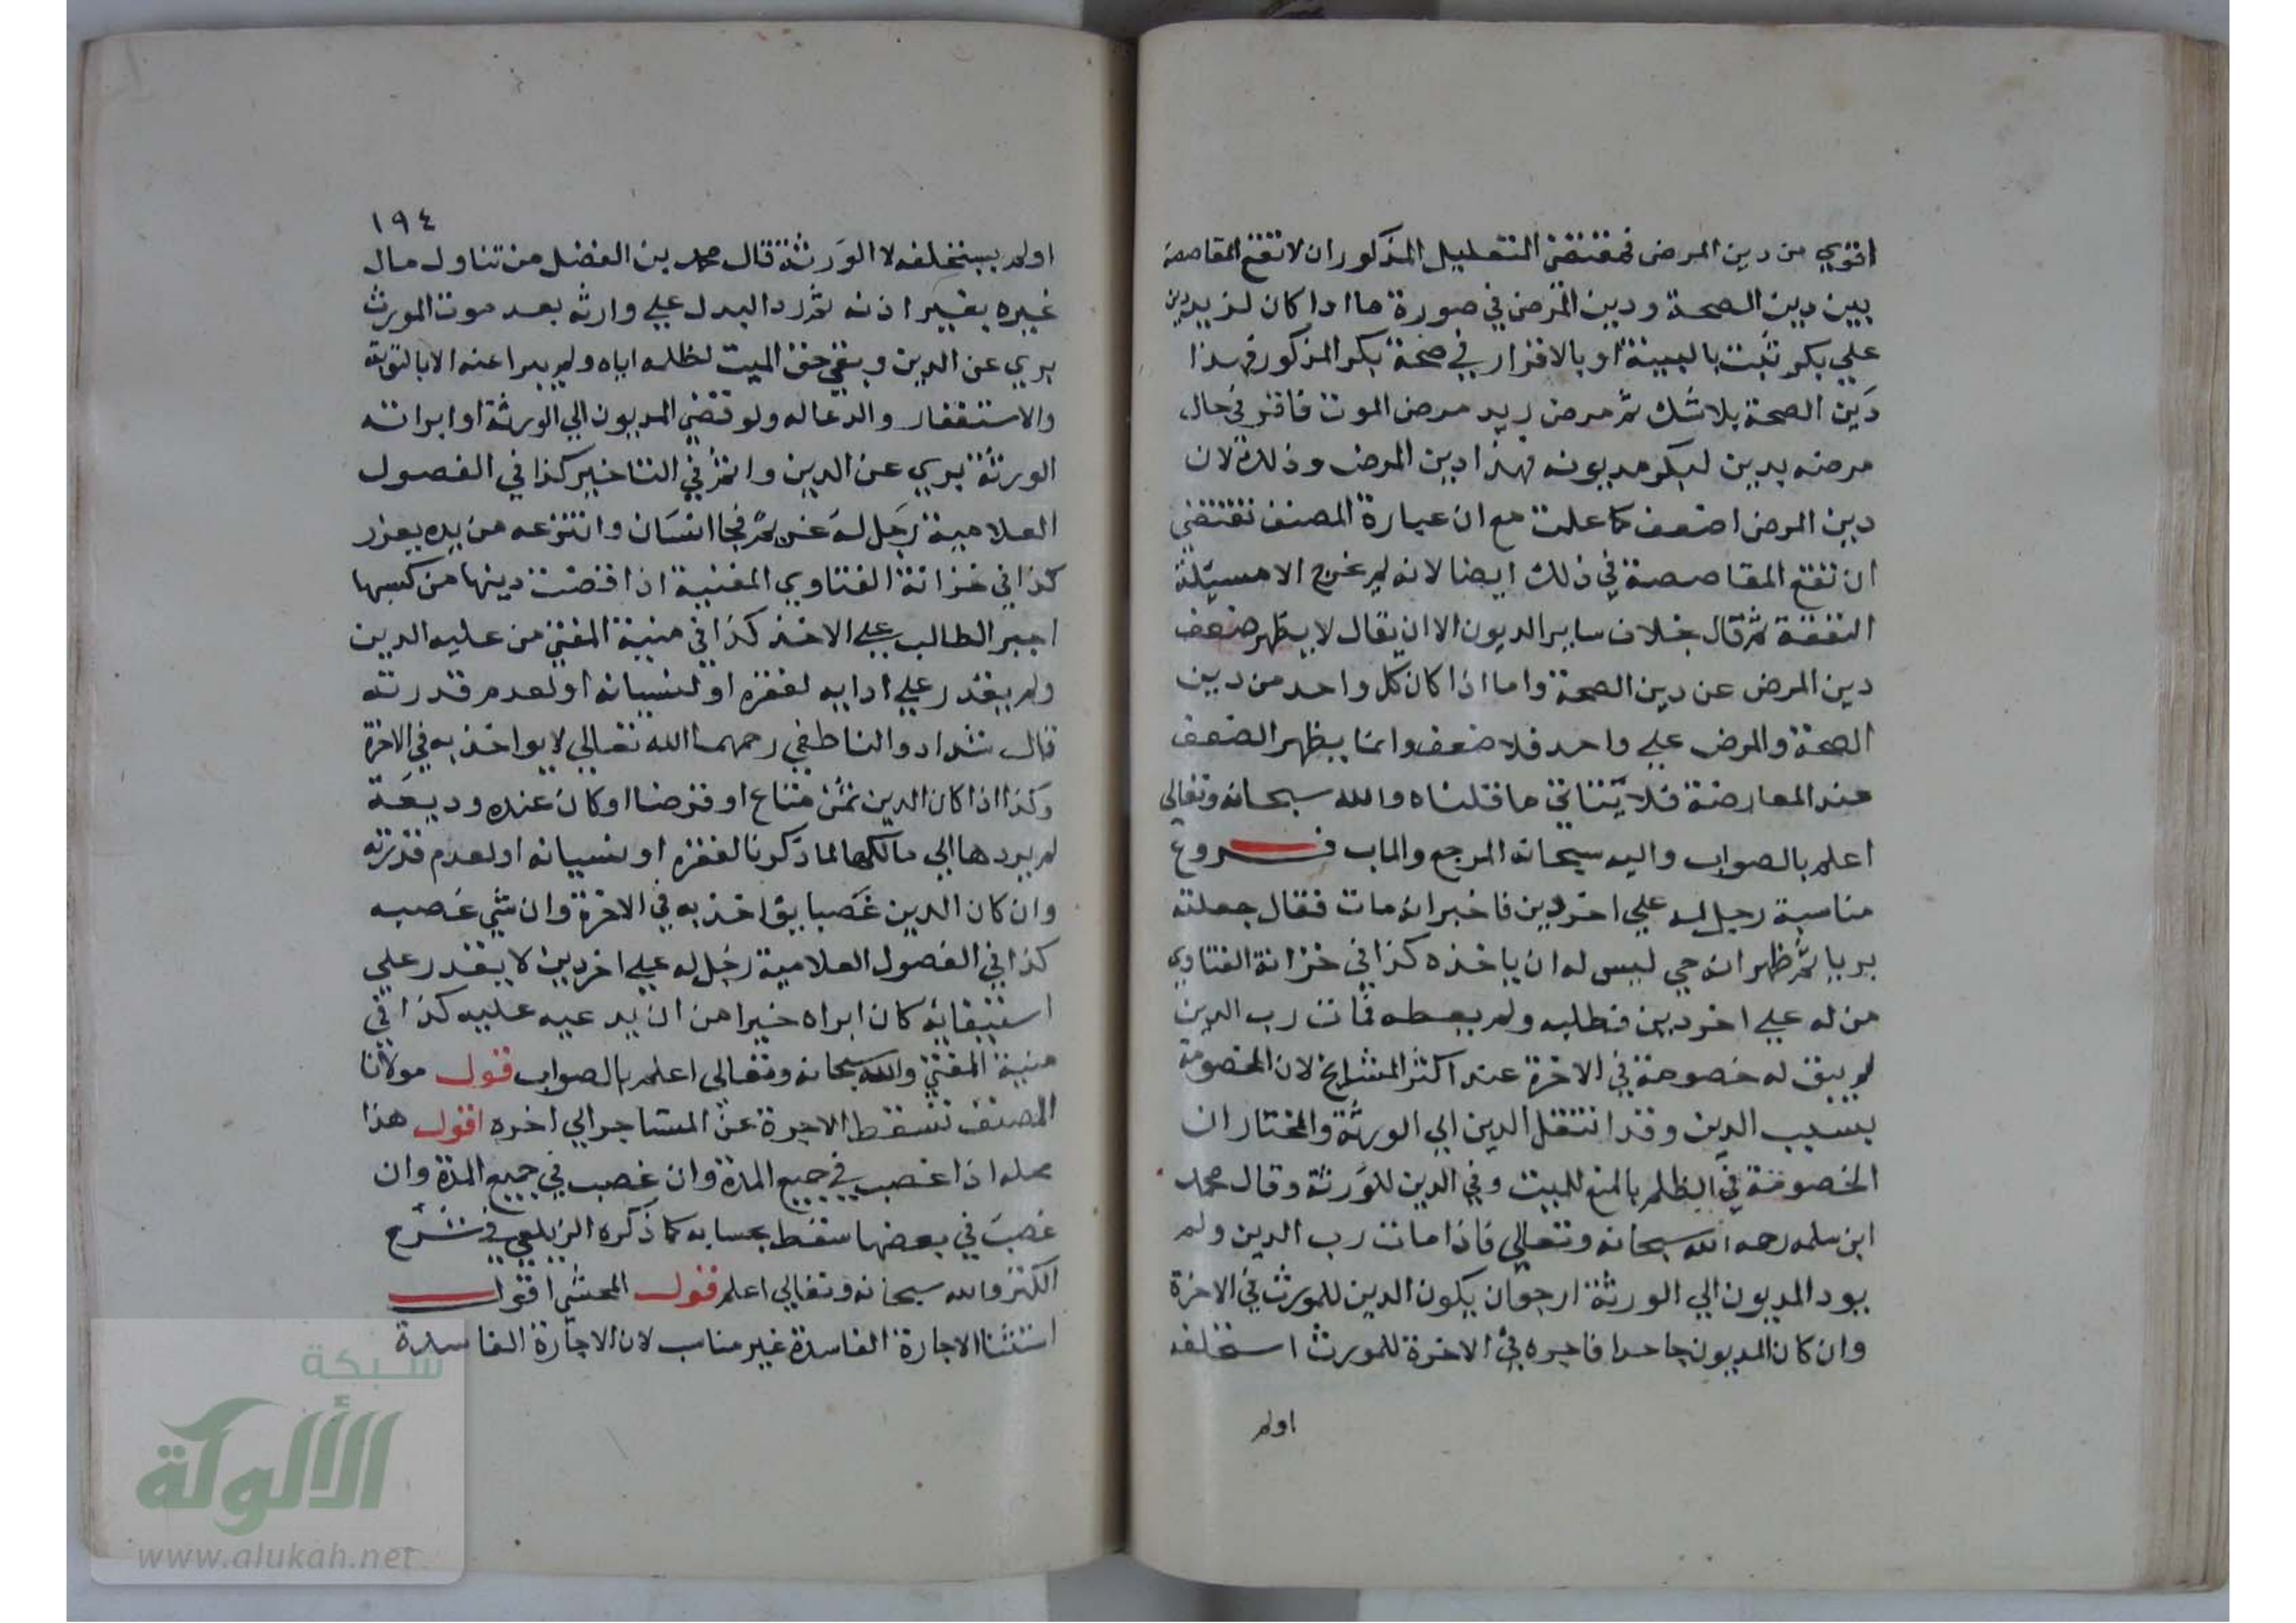 اقوي من دين المرض فمقتضي التعليل المذكور ان لا تقع المقاصصة
بين دين الصحة ودين المرض في صورة ما اذا كان لزيد دين
علي بكر ثبت بالبينة او بالاقرار في صحة بكر المذكور فهذا
دَين الصحة بلا شك ثم مرض زيد مرض الموت فاقر في حال
مرضه بدين لبكر مديونه فهذا دين المرض وذلك لان
دين المرض اضعف كما علمت مع ان عبارة المصنف تقتضي
ان تقع المقاصصة في ذلك ايضا لانه لم يخرج الا مسئلة
النفقة ثم قال بخلاف ساير الديون الا ان يقال لا يظهر ضعف
دين المرض عن دين الصحة واما اذا كان كل واحد من دين
الصحة والمرض علي واحد فلا ضعف وانما يظهر الضعف
عند المعارضة فلا يتاتي ما قلناه والله سبحانه وتعالي
اعلم بالصواب واليه سبحانه المرجع والماب فروع
مناسبة رجل له علي اخر دين فاخبر انه مات فقال جعلته
بريا ثم ظهر انه حي ليس له ان ياخذه كذا في خزانة الفتاوي
من له علي اخر دين فطلبه ولم يعطه فمات رب الدين
لم يبق له خصومة في الاخرة عند اكثر المشايخ لان الخصومة
بسبب الدين وقد انتقل الدين الي الورثة والمختار ان
الخصومة في الظلم بالمنع للميت وفي الدين للوَرثة وقال محمد
ابن سلمه رحمه الله سبحانه وتعالي فاذا مات رب الدين ولم
يود المديون الي الورثة ارجو ان يكون الدين للمورث في الاخرة
وان كان المديون جاحدا فاجره في الاخرة للمورث استخلفه
اولم
١٩٤
اولم يستخلفه لا الوَرثة قال محمد بن الفضل من تناول مال
غيره بغير اذنه ثم رد البدل علي وارثه بعد موت المورث
بري عن الدين وبقي حق الميت لظلمه اياه ولم يبرا عنه الا بالتوبة
والاستغفار والدعا له ولو قضي المديون الي الورثة او ابراته
الورثة بري عن الدين واثم في التاخير كذا في الفصول
العلامية رَجل له غريم فجا انسان وانتزعه من يده يعزر
كذا في خزانة الفتاوي المغنية اذا قضت دينها من كسبها
اجبر الطالب علي الاخذ كذا في منية المفتي من عليه الدين
ولم يقدر علي ادايه لفقره او لنسيانه او لعدم قدرته
قال شداد والناطفي رحمهما الله تعالي لا يواخذ به في الاخرة
وكذا اذا كان الدين ثمن متاع او قرضا او كان عنده وديعَة
لم يردها الي مالكها لما ذكرنا لفقره او نسيانه او لعدم قدرته
وان كان الدين غَصبا يؤاخذ به في الاخرة وان نسي غَصبه
كذا في الفصول العلامية رجُل له علي اخر دين لا يقدر علي
استيفايه كان ابراه خيرا من ان يدعيه عليه كذا في
منية المفتي والله سبحانه وتعالي اعلم بالصواب قول مولانا
المصنف تسقط الاجرة عن المستاجر الي اخره اقول هذا
محله اذا غصب في جميع المدة وان غصب في جميع المدة وان
غصبَ في بعضها سقط بحسابه كما ذكره الزيلعي في شرح
الكنز والله سبحانه وتعالي اعلم قول المحشي اقول
استثنا الاجارة الفاسدة غير مناسب لان الاجارة الفاسدة
شبكة
الألوكة
www.alukah.net